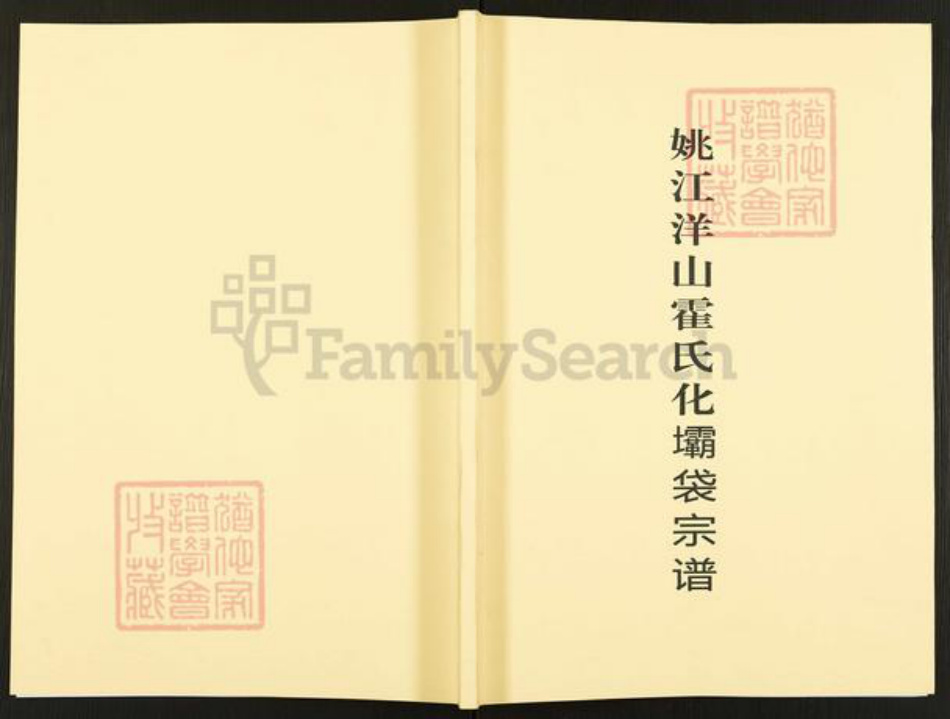 姚江洋山霍氏化壩袋宗谱
猶他家譜學會收藏
FamilySearch
猶他家譜學會收藏